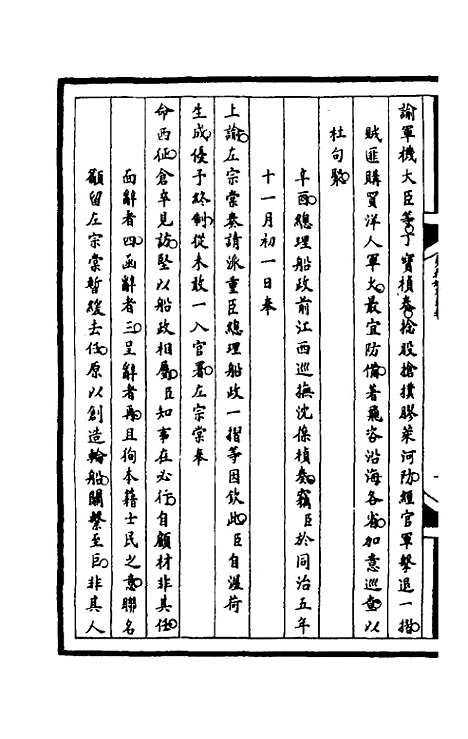 諭軍機大臣等丁寶楨奏捻股搶撲膠萊河防經官軍擊退一摺
賊匪購買洋人軍火最宜防備著飛咨沿海各省加意巡查以
杜勾聚
辛酉總理船政前江西巡撫沈葆楨奏竊臣於同治五年
十一月初一日奉
上諭左宗棠奏請派重臣總理船政一摺等因欽此臣自渥荷
生成優予終制從未敢一入官署左宗棠奉
命西征倉卒見訪堅以船政相屬臣知事在必行自顧材非其任
面辭者四函辭者三呈辭者再且徇本籍士民之意聯名
籲留左宗棠暫緩去任原以創造輪船關繫至巨非其人